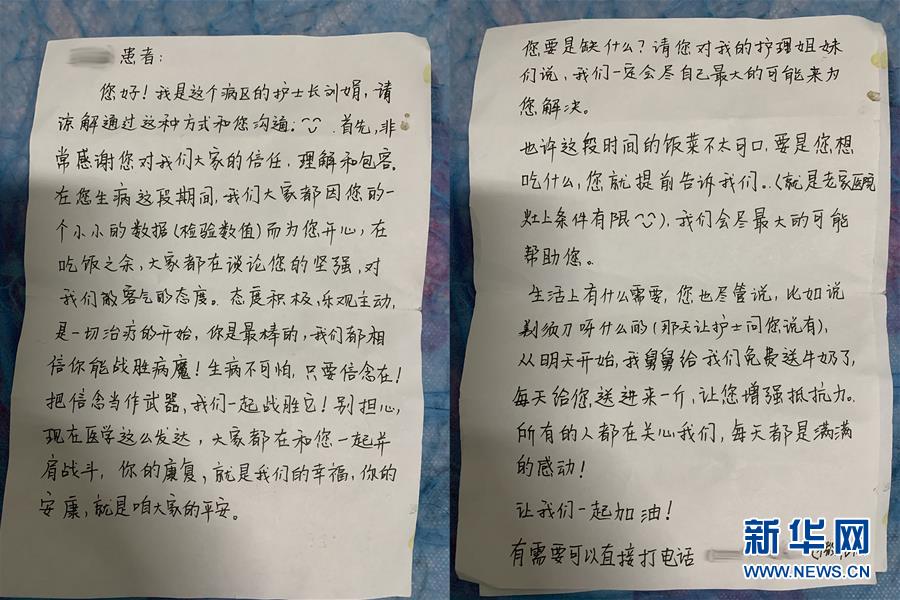 患者：
您好！我是这个病区的护士长刘娟，请
谅解通过这种方式和您沟通。首先，非
常感谢您对我们大家的信任、理解和包容。
在您生病这段期间，我们大家都因您的一
个小小的数据（检验数值）而为您开心，在
吃饭之余，大家都在谈论您的坚强，对
我们的客气的态度。态度积极，乐观主动，
是一切治疗的开始，你是最棒的，我们都相
信你能战胜病魔！生病不可怕，只要信念在！
把信念当作武器，我们一起战胜它！别担心，
现在医学这么发达，大家都在和您一起并
肩战斗，你的康复，就是我们的幸福，你的
安康，就是咱大家的平安。
您要是缺什么？请您对我的护理姐妹
们说，我们一定会尽自己最大的可能来为
您解决。
也许这段时间的饭菜不太可口，要是您想
吃什么，您就提前告诉我们。（就是老家医院
灶上条件有限），我们会尽最大的可能
帮助您。
生活上有什么需要，您也尽管说，比如说
剃须刀呀什么的（那天让护士问您说有），
从明天开始，我舅舅给我们免费送牛奶了，
每天给您送进来一斤，让您增强抵抗力。
所有的人都在关心我们，每天都是满满
的感动！
让我们一起加油！
有需要可以直接打电话
新华网
WWW.NEWS.CN